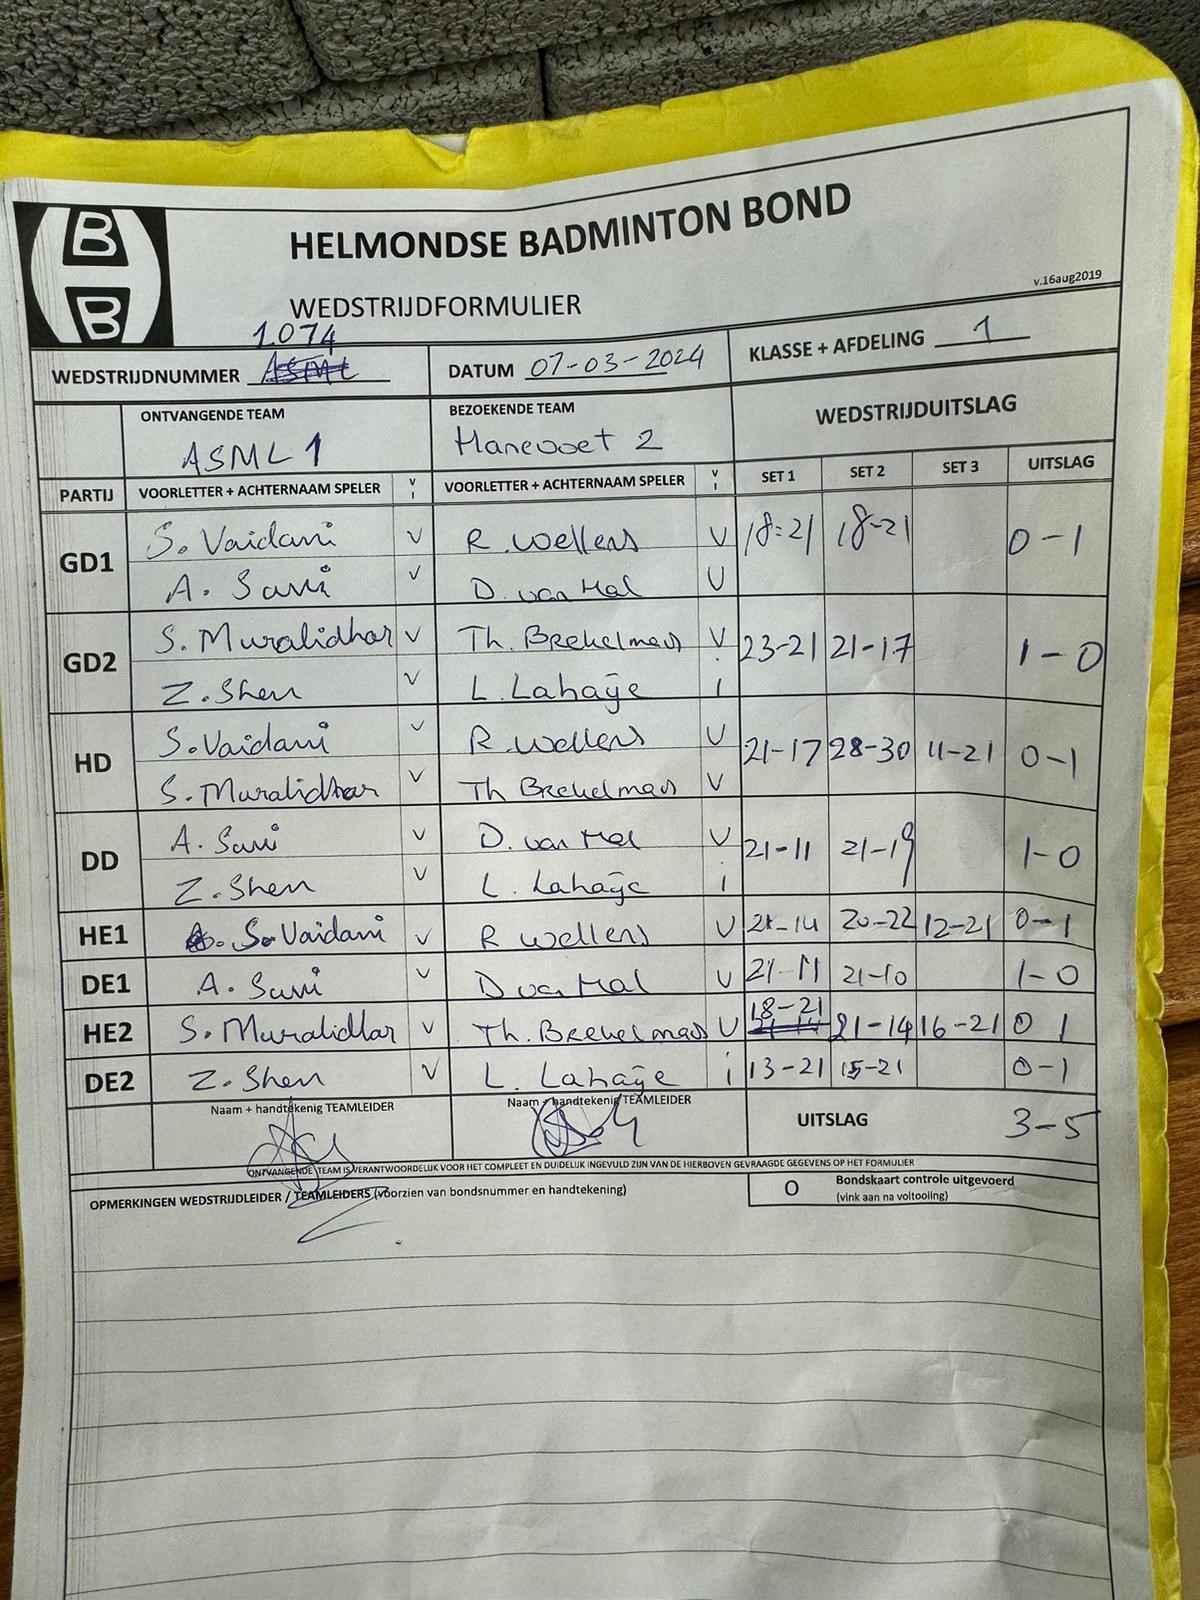 B
B
HELMONDSE BADMINTON BOND
v.16aug2019
WEDSTRIJDFORMULIER
1.074
WEDSTRIJDNUMMER ASML DATUM 07-03-2024 KLASSE + AFDELING 1
ONTVANGENDE TEAM BEZOEKENDE TEAM WEDSTRIJDUITSLAG
ASML 1 Hanevoet 2
PARTIJ VOORLETTER + ACHTERNAAM SPELER V I VOORLETTER + ACHTERNAAM SPELER V I SET 1 SET 2 SET 3 UITSLAG
GD1 S. Vaidani V R. Wellens V 18-21 18-21 0-1
A. Savi V D. van Hal V
GD2 S. Muralidhar V Th. Brekelmans V 23-21 21-17 1-0
Z. Shen V L. Lahaije i
HD S. Vaidani V R. Wellens V 21-17 28-30 11-21 0-1
S. Muralidhar V Th Brekelmans V
DD A. Savi V D. van Hal V 21-11 21-19 1-0
Z. Shen V L. Lahaije i
HE1 S. Vaidani V R Wellens V 21-14 20-22 12-21 0-1
DE1 A. Savi V D van Hal V 21-11 21-10 1-0
HE2 S. Muralidhar V Th. Brekelmans V 18-21 21-14 16-21 0 1
DE2 Z. Shen V L. Lahaije i 13-21 15-21 0-1
Naam + handtekenig TEAMLEIDER Naam + handtekening TEAMLEIDER UITSLAG 3-5
ONTVANGENDE TEAM IS VERANTWOORDELIJK VOOR HET COMPLEET EN DUIDELIJK INGEVULD ZIJN VAN DE HIERBOVEN GEVRAAGDE GEGEVENS OP HET FORMULIER
OPMERKINGEN WEDSTRIJDLEIDER / TEAMLEIDERS (voorzien van bondsnummer en handtekening) O Bondskaart controle uitgevoerd
(vink aan na voltooiing)